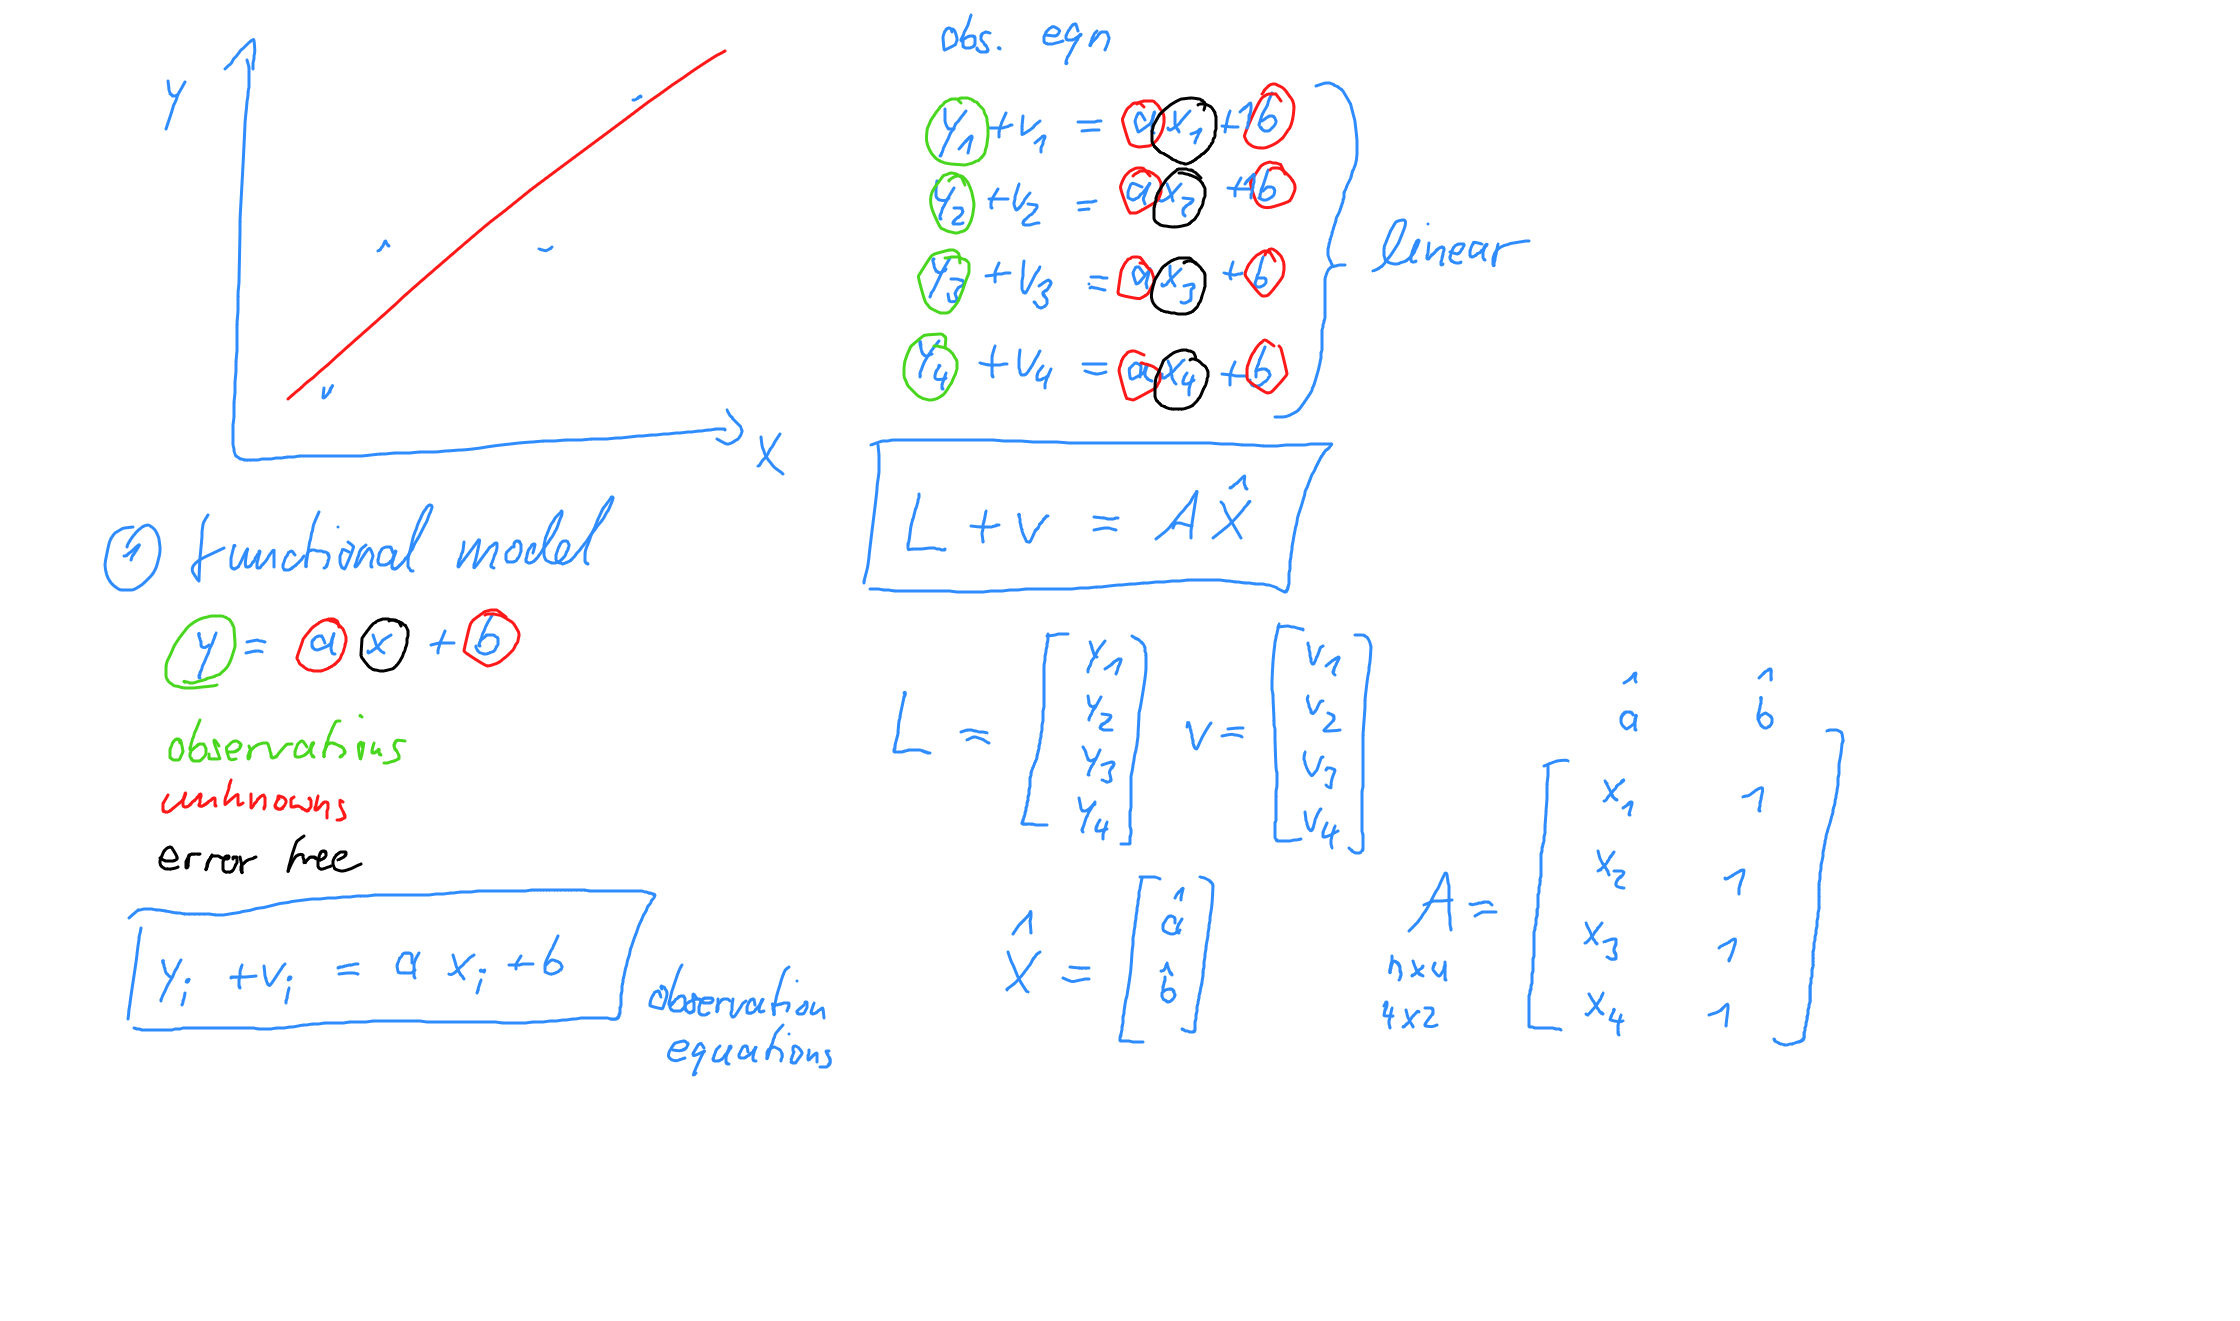 y
x
① functional model
y = a x + b
observations
unknowns
error free
yᵢ + vᵢ = a xᵢ + b
observation
equations
obs. eqn
y₁ + v₁ = a x₁ + 1b
y₂ + v₂ = a x₂ + 1b
y₃ + v₃ = a x₃ + b
y₄ + v₄ = a x₄ + b
linear
L + v = A X̂
L = [ y₁ y₂ y₃ y₄ ] v = [ v₁ v₂ v₃ v₄ ]
X̂ = [ â b̂ ]
â b̂
x₁ 1
x₂ 1
A =
x₃ 1
n×u
x₄ 1
4×2